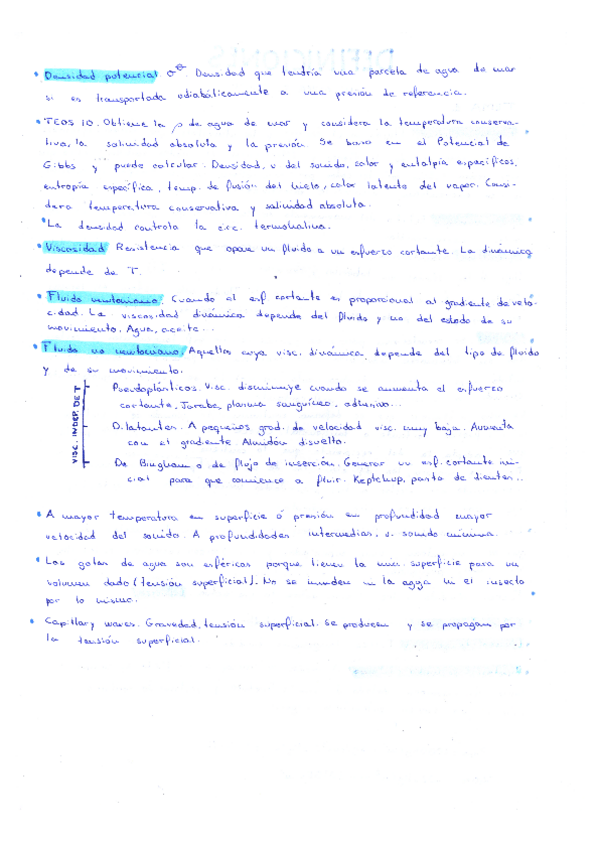 • Densidad potencial σ^θ. Densidad que tendría una parcela de agua de mar
si es transportada adiabáticamente a una presión de referencia.
• TEOS 10. Obtiene la ρ de agua de mar y considera la temperatura conserva-
tiva, la salinidad absoluta y la presión. Se basa en el Potencial de
Gibbs y puede calcular: Densidad, v del sonido, calor y entalpía específicos,
entropía específica, temp. de fusión del hielo, calor latente del vapor. Consi-
dera temperatura conservativa y salinidad absoluta.
• La densidad controla la circ. termohalina.
• Viscosidad Resistencia que opone un fluido a un esfuerzo cortante. La dinámica
depende de T.
• Fluido newtoniano. Cuando el esf cortante es proporcional al gradiente de velo-
cidad. La viscosidad dinámica depende del fluido y no del estado de su
movimiento. Agua, aceite...
• Fluido no newtoniano. Aquellos cuya visc. dinámica depende del tipo de fluido
y de su movimiento.
VISC. INDEP. DE T
Pseudoplásticos. Visc. disminuye cuando se aumenta el esfuerzo
cortante, Jarabe, plasma sanguíneo, adhesivo...
Dilatantes. A pequeños grad. de velocidad visc. muy baja. Aumenta
con el gradiente Almidón disuelto.
De Bingham o de flujo de inserción. Generar un esf. cortante ini-
cial para que comience a fluir. Keptchup, pasta de dientes...
• A mayor temperatura en superficie ó presión en profundidad mayor
velocidad del sonido. A profundidades intermedias, v. sonido mínima.
• Las gotas de agua son esféricas porque tienen la min. superficie para un
volumen dado (tensión superficial). No se hunden en la agua ni el insecto
por lo mismo.
• Capillary waves. Gravedad, tensión superficial. Se producen y se propagan por
la tensión superficial.